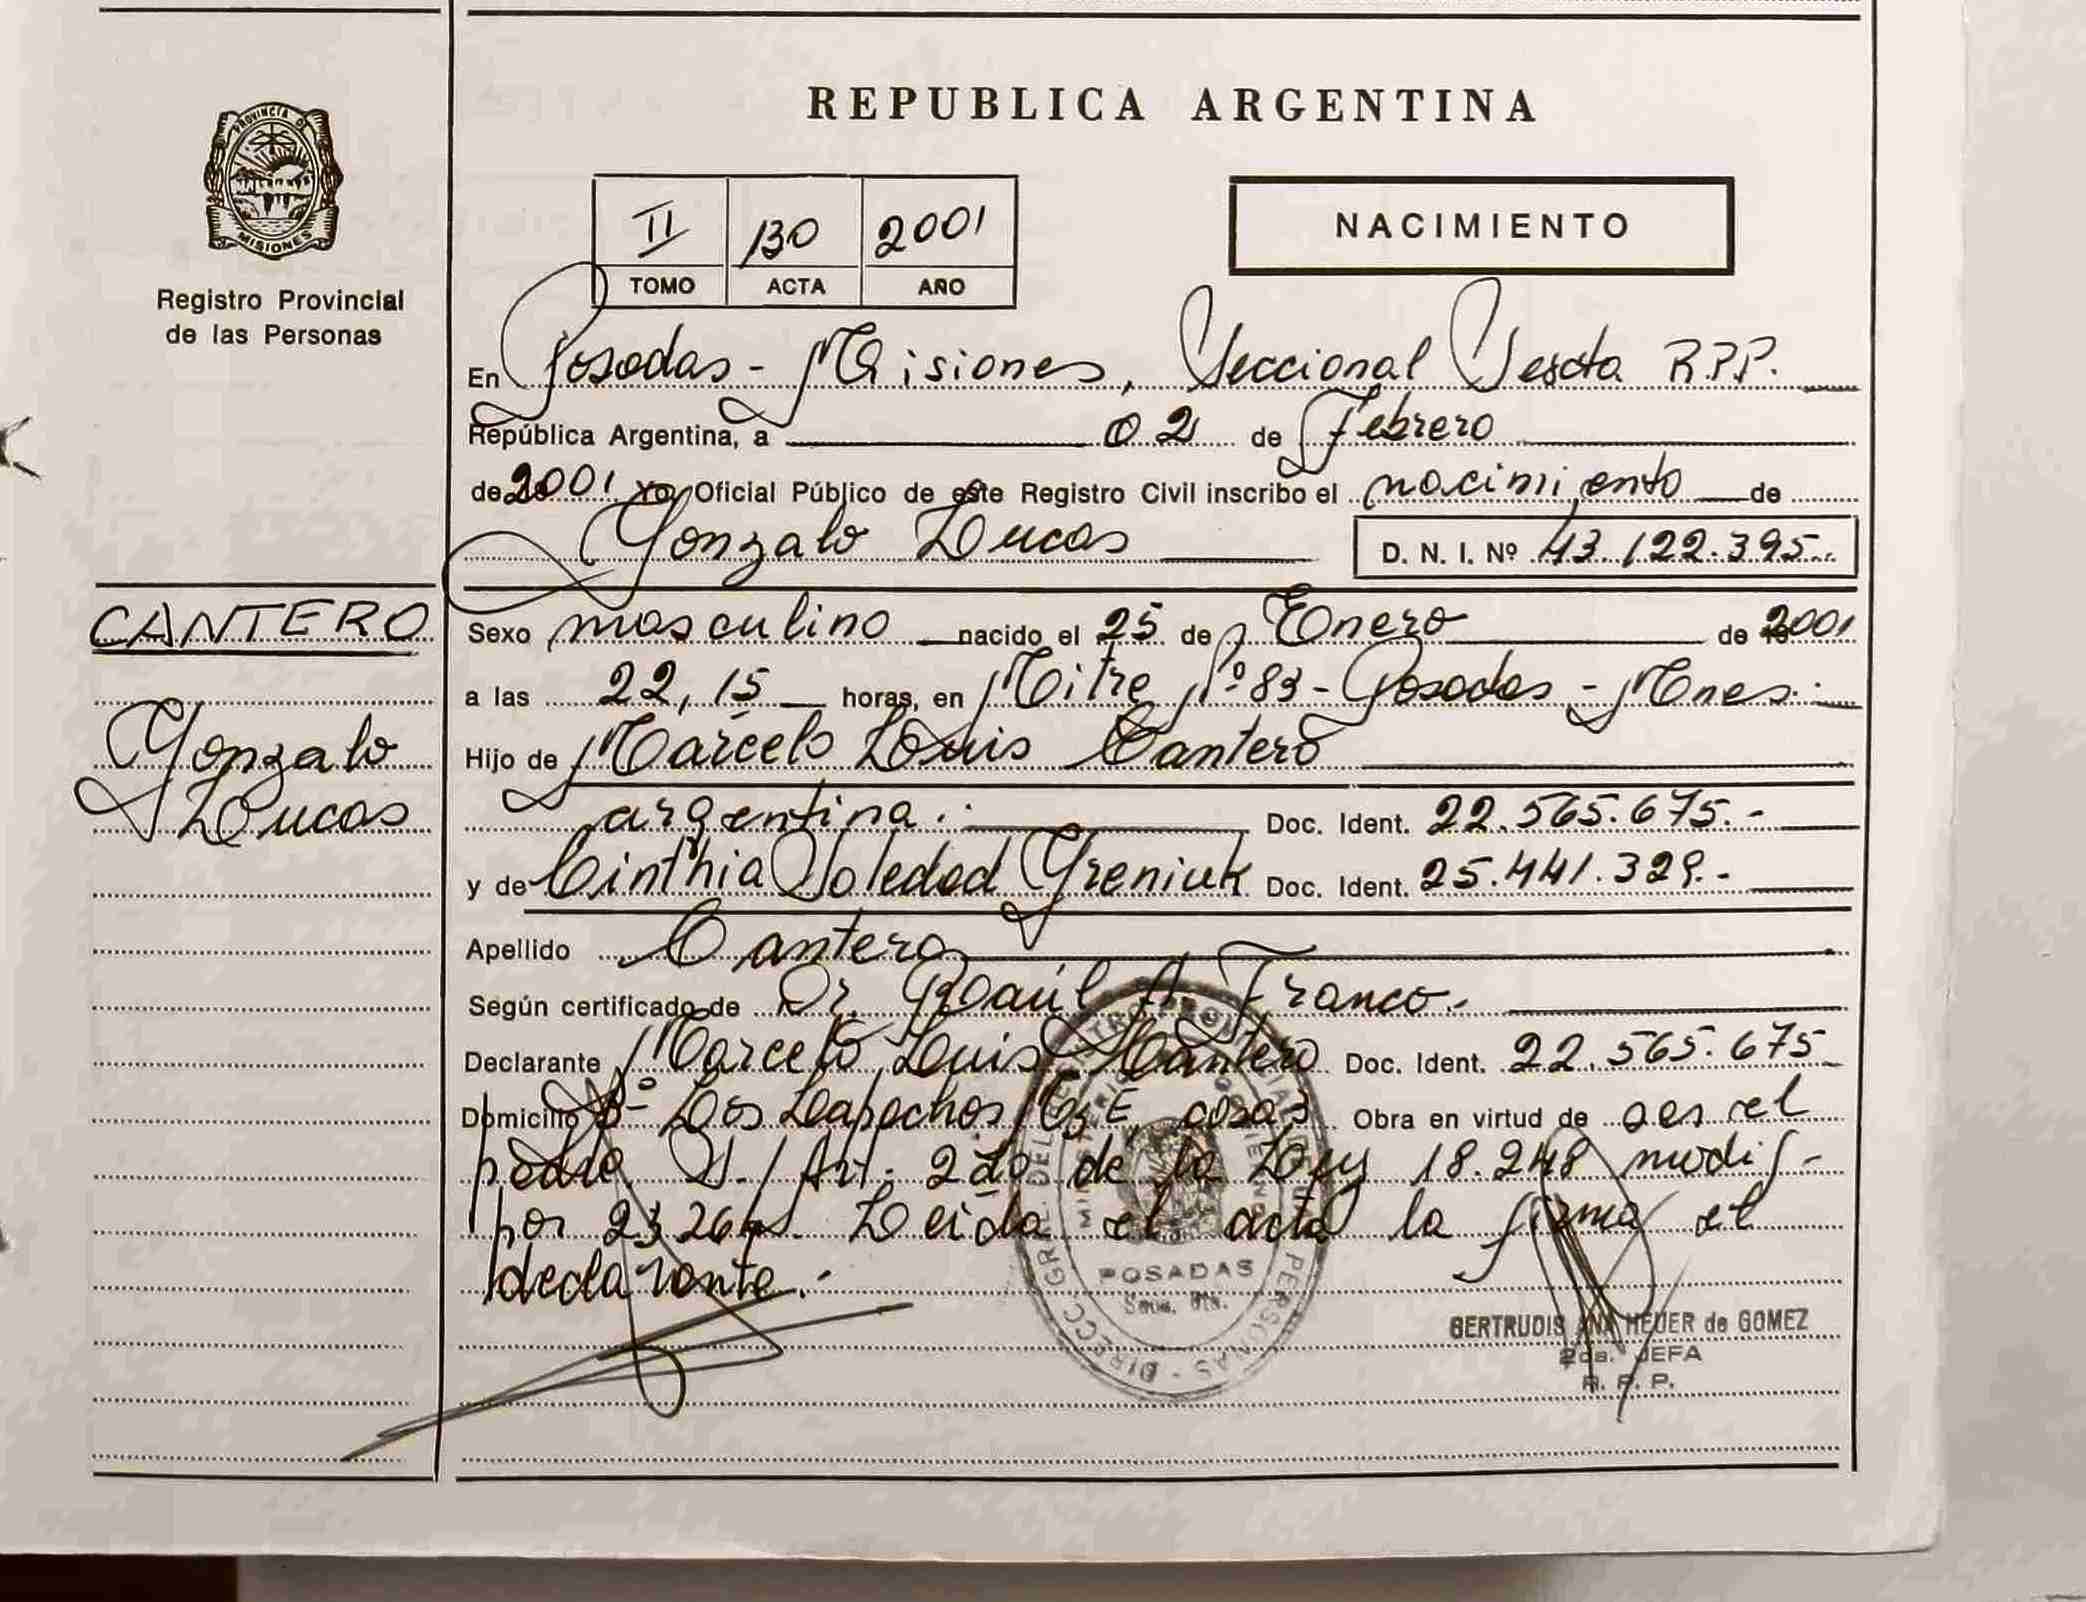 REPUBLICA ARGENTINA
PROVINCIA DE
MISIONES
Registro Provincial
de las Personas
II 130 2001
TOMO ACTA AÑO
NACIMIENTO
En Posadas - Misiones, Seccional Sexta R.P.P.
República Argentina, a 02 de Febrero
de 2001 Yo, Oficial Público de este Registro Civil inscribo el nacimiento de
Gonzalo Lucas D. N. I. Nº 43.122.395.
CANTERO
Gonzalo
Lucas
Sexo masculino nacido el 25 de Enero de 2001
a las 22,15 horas, en Mitre Nº 83 - Posadas - Mnes.
Hijo de Marcelo Luis Cantero
argentina. Doc. Ident. 22.565.675.-
y de Cinthia Soledad Greniuk Doc. Ident. 25.441.329.-
Apellido Cantero
Según certificado de Dr. Raúl A. Franco.
Declarante Marcelo Luis Cantero Doc. Ident. 22.565.675
Domicilio Bº Los Lapachos Obra en virtud de ser el
padre. Art. 2do de la Ley 18.248 modif-
por 23264. Leída el acta la firma el
declarante.
POSADAS
GERTRUDIS ANA HEUER de GOMEZ
2da. JEFA
R. P. P.